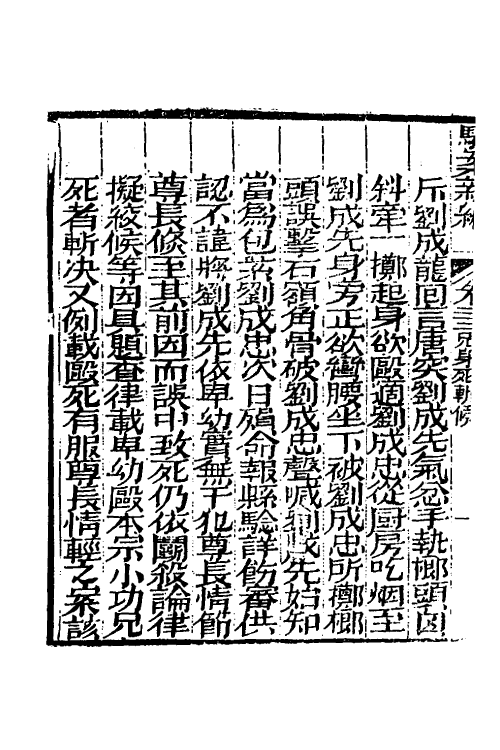 駁案新編　卷三　兄身死斬候　一
斥劉成龍回言唐突劉成先氣忿手執榔頭向
斜牽一擲起身欲毆適劉成忠從厨房吃烟至
劉成先身旁正欲彎腰坐下被劉成忠所擲榔
頭誤擊右額角骨破劉成忠聲喊劉成先始知
當爲包紮劉成忠次日殞命報縣驗詳飭審供
認不諱將劉成先依卑幼實無干犯尊長情節
尊長倐至其前因而誤中致死仍依鬬殺論律
擬絞候等因具題查律載卑幼毆本宗小功兄
死者斬决又例載毆死有服尊長情輕之案該